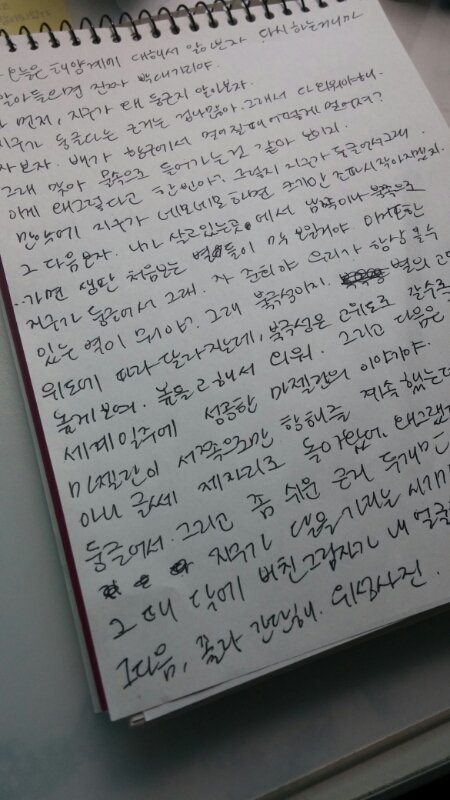 오늘은 태양계에 대해서 알아보자 다시하는거니까
알아들으면 진짜 빡대가리야.
먼저, 지구가 왜 둥근지 알아보자.
지구가 둥글다는 근거는 겁나많아. 그래서 다 외워야해.
자보자. 배가 항구에서 멀어질때 어떻게 멀어져?
그래 맞아 물속으로 들어가는것 같아 보이지.
이게 왜그렇다고 한번아? 그렇지 지구가 둥글어서그래.
만약에 지구가 네모네모하면 크기만 작아지겠지.
그 다음은자. 니가 살고있는곳에서 남쪽이나 북쪽으로
가면 생판 처음보는 별들이 막 보일거야. 이또한
지구가 둥글어서 그래. 자 준희야 우리가 항상 볼수
있는 별이 뭐야? 그래 북극성이지. 별의 고도
위도에 따라 달라지는데, 북극성은 고위도로 갈수록
높게보여. 높을 고 해서 외워. 그리고 다음은
세계일주에 성공한 마젤란의 이야기야.
마젤란이 서쪽으로만 항해를 계속 했는데
아니 글쎄 제자리로 돌아왔어. 왜그랬
둥글어서. 그리고 좀 쉬운 근거 두개만
지구가 달을 가리는 시기
그 때 달에 비친그림자가 내 얼굴
그다음, 졸라 간단해. 위성사진.